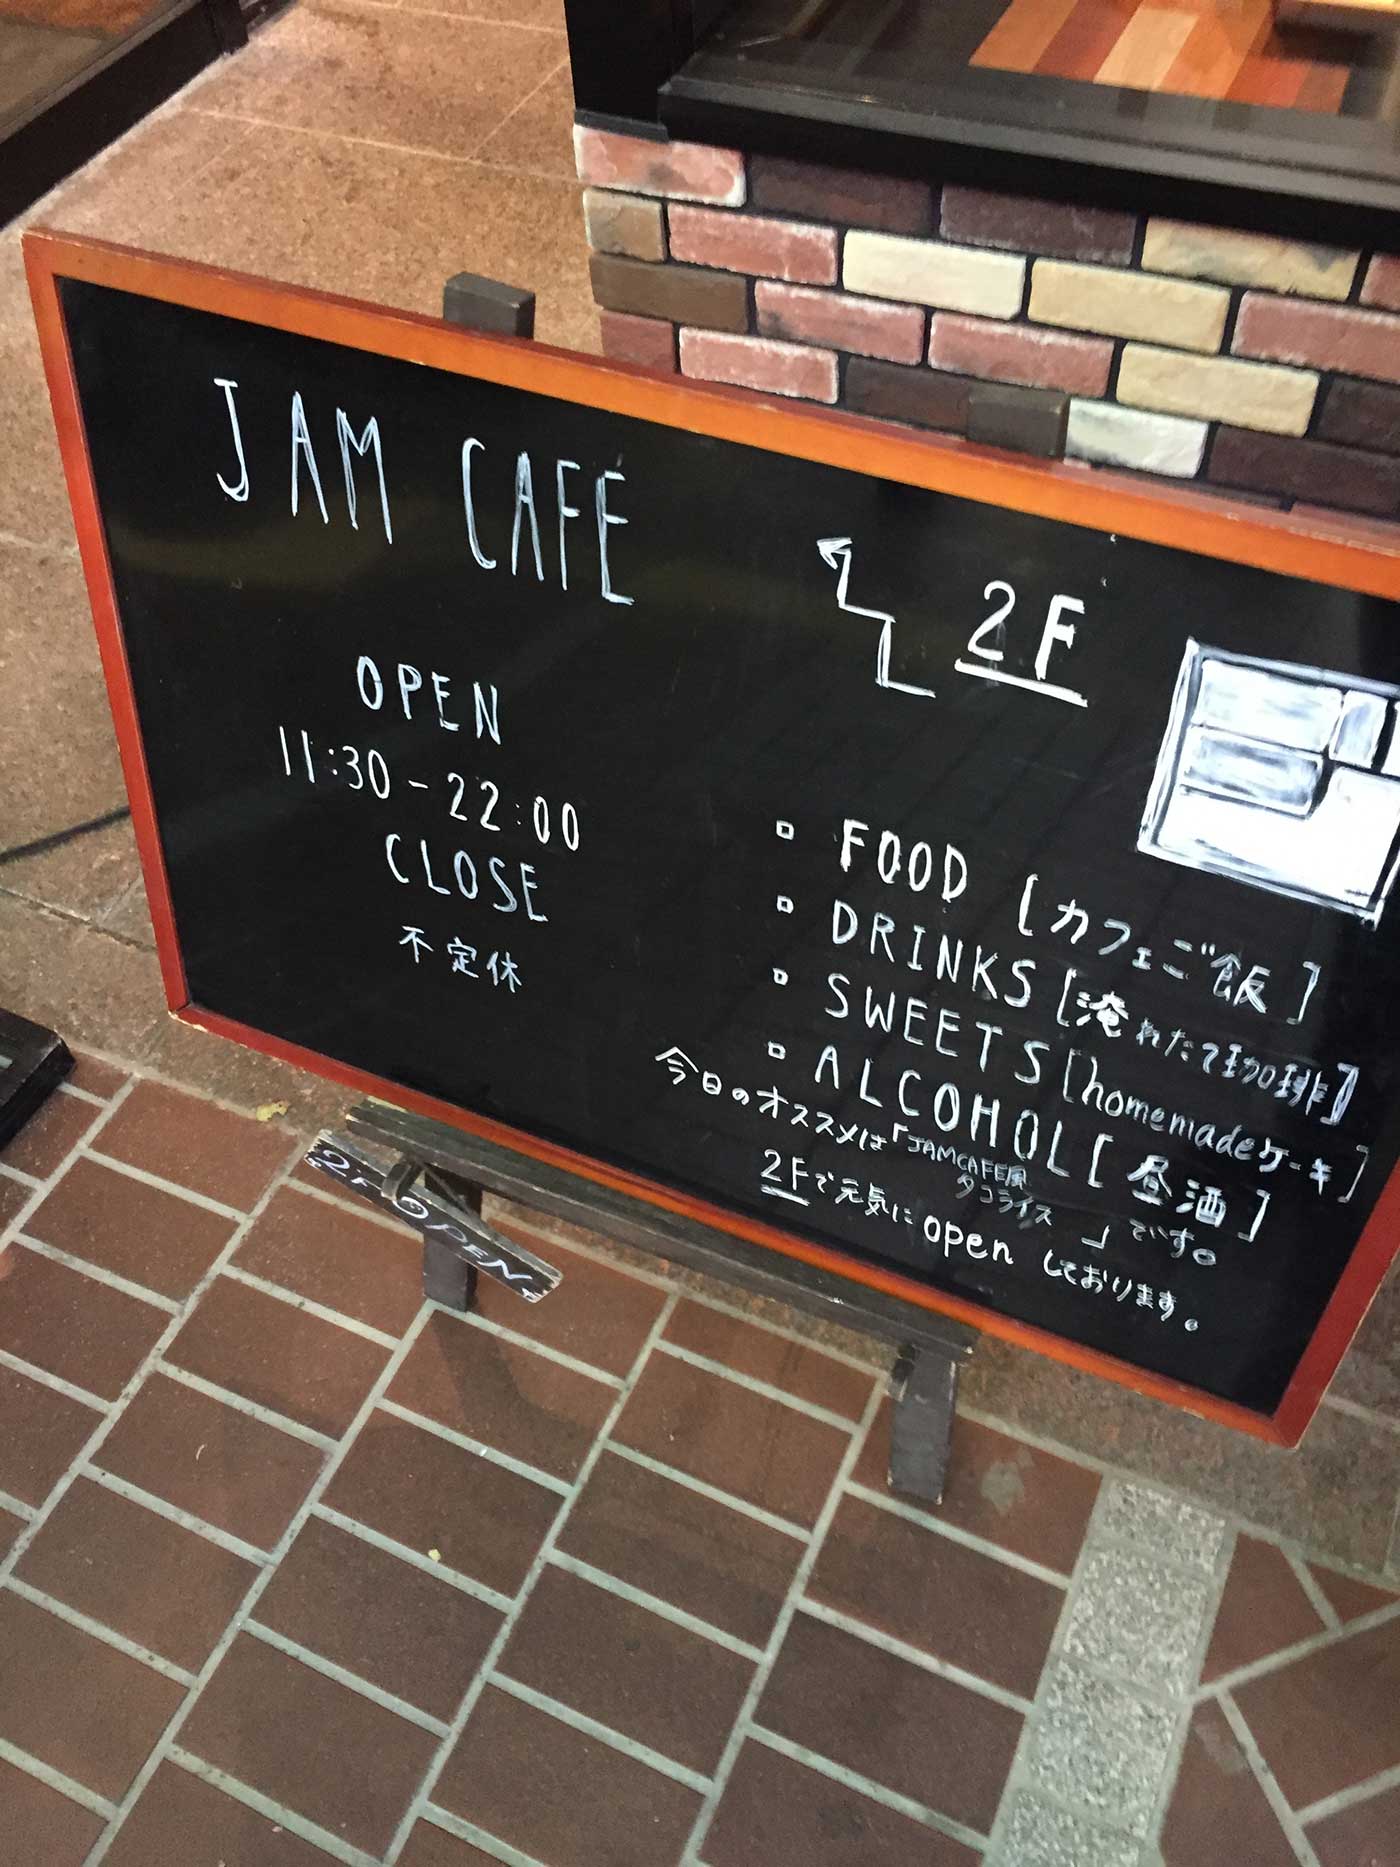 JAM CAFE
OPEN
11:30-22:00
CLOSE
不定休
2F
FOOD [カフェご飯]
DRINKS [淹れたて珈琲]
SWEETS [homemadeケーキ]
ALCOHOL [昼酒]
今日のオススメは「JAMCAFE風タコライス」です。
2Fで元気にopenしております。
2F OPEN